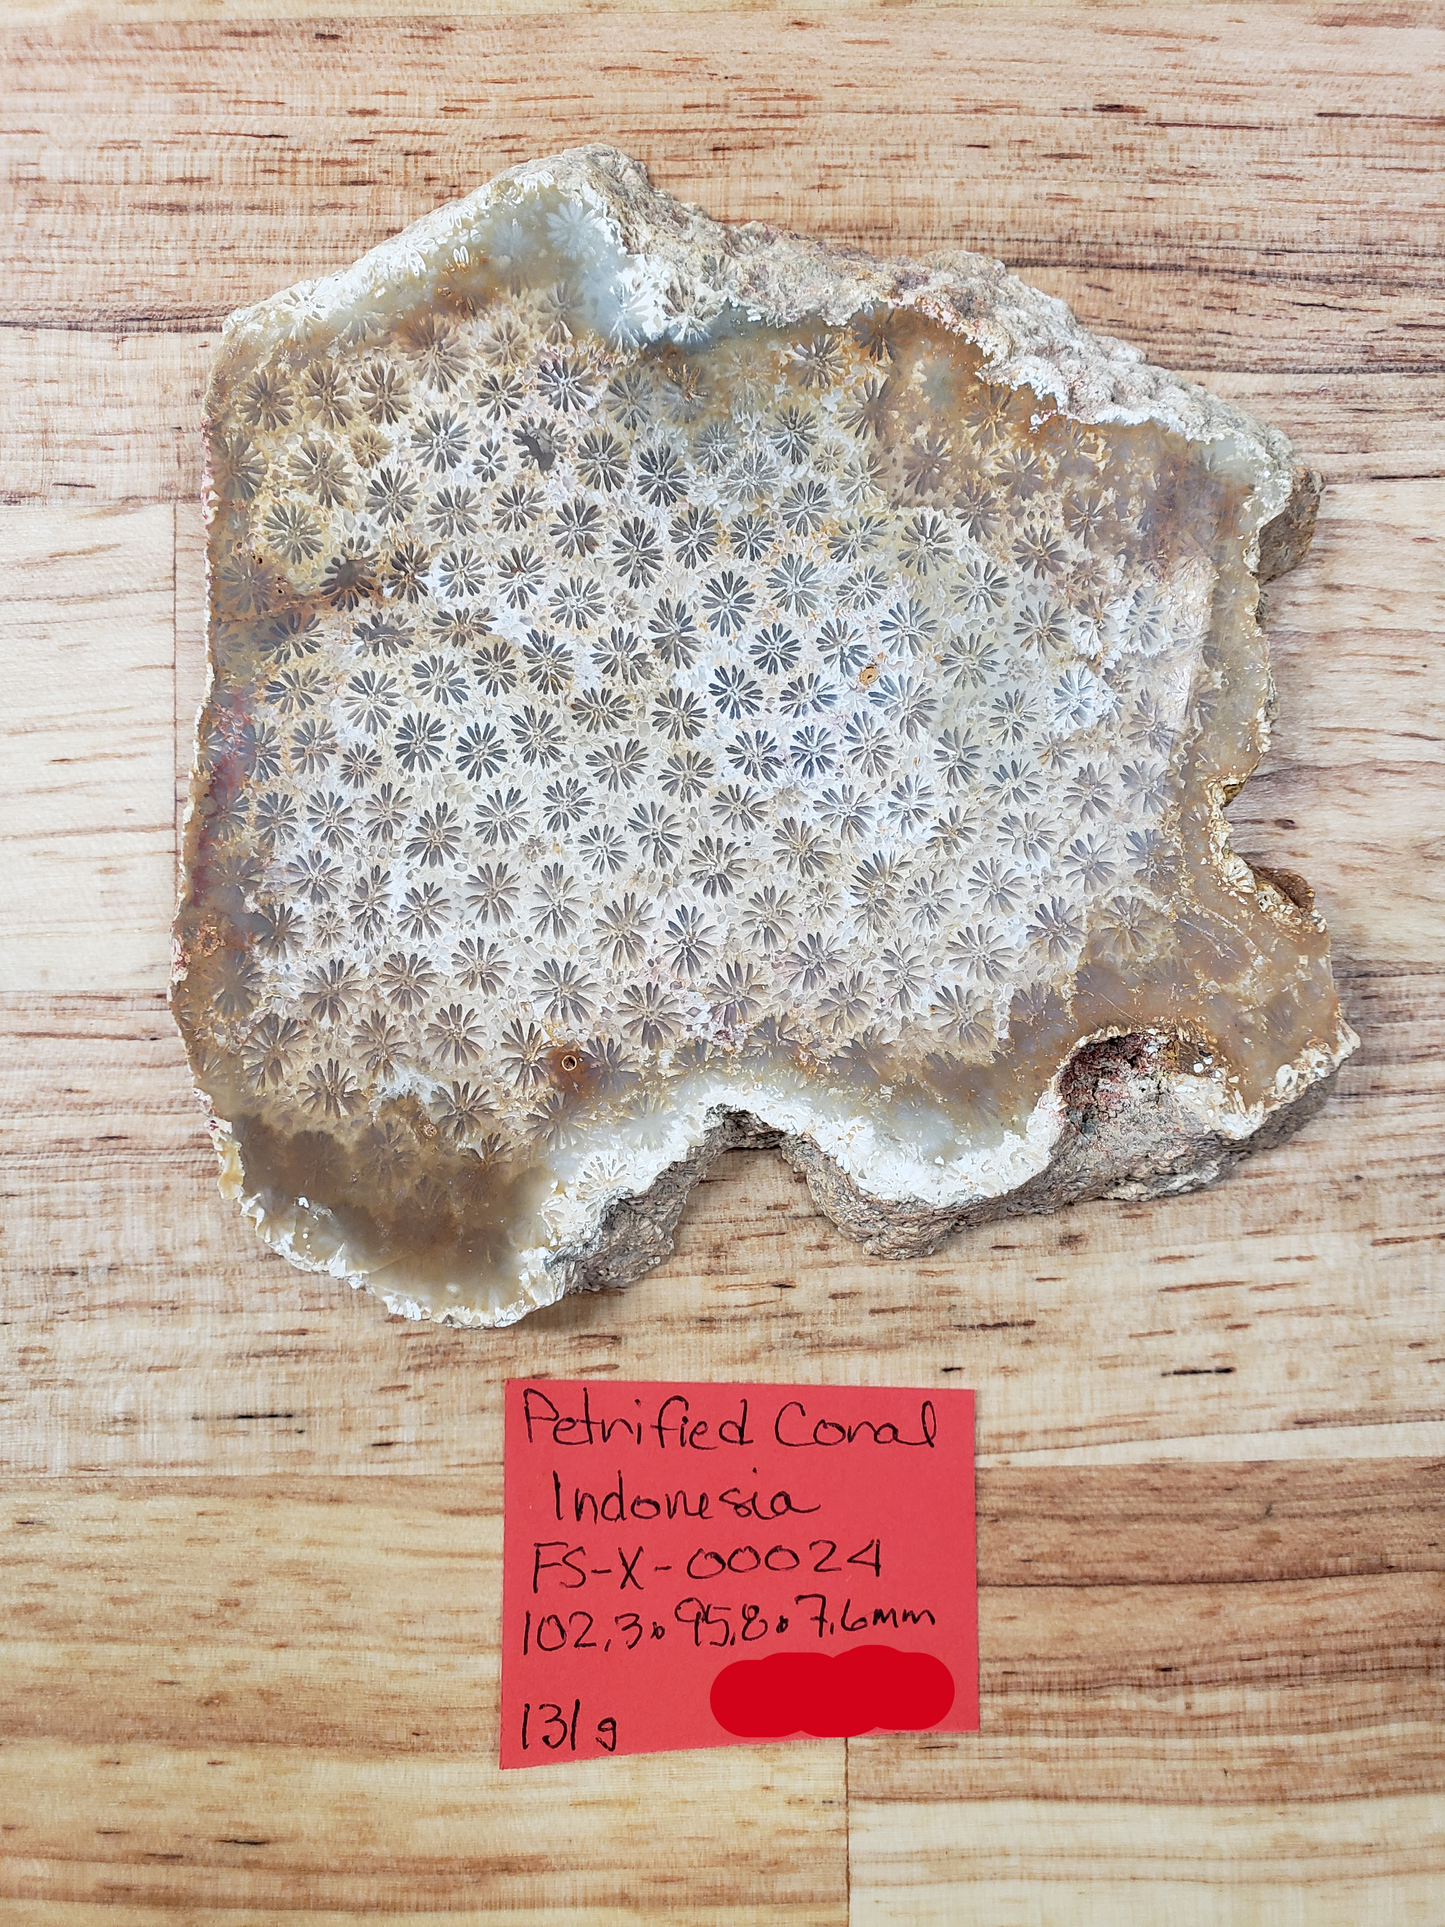 Petrified Coral
Indonesia
FS-X-00024
102.3•95.8•7.6mm
131g